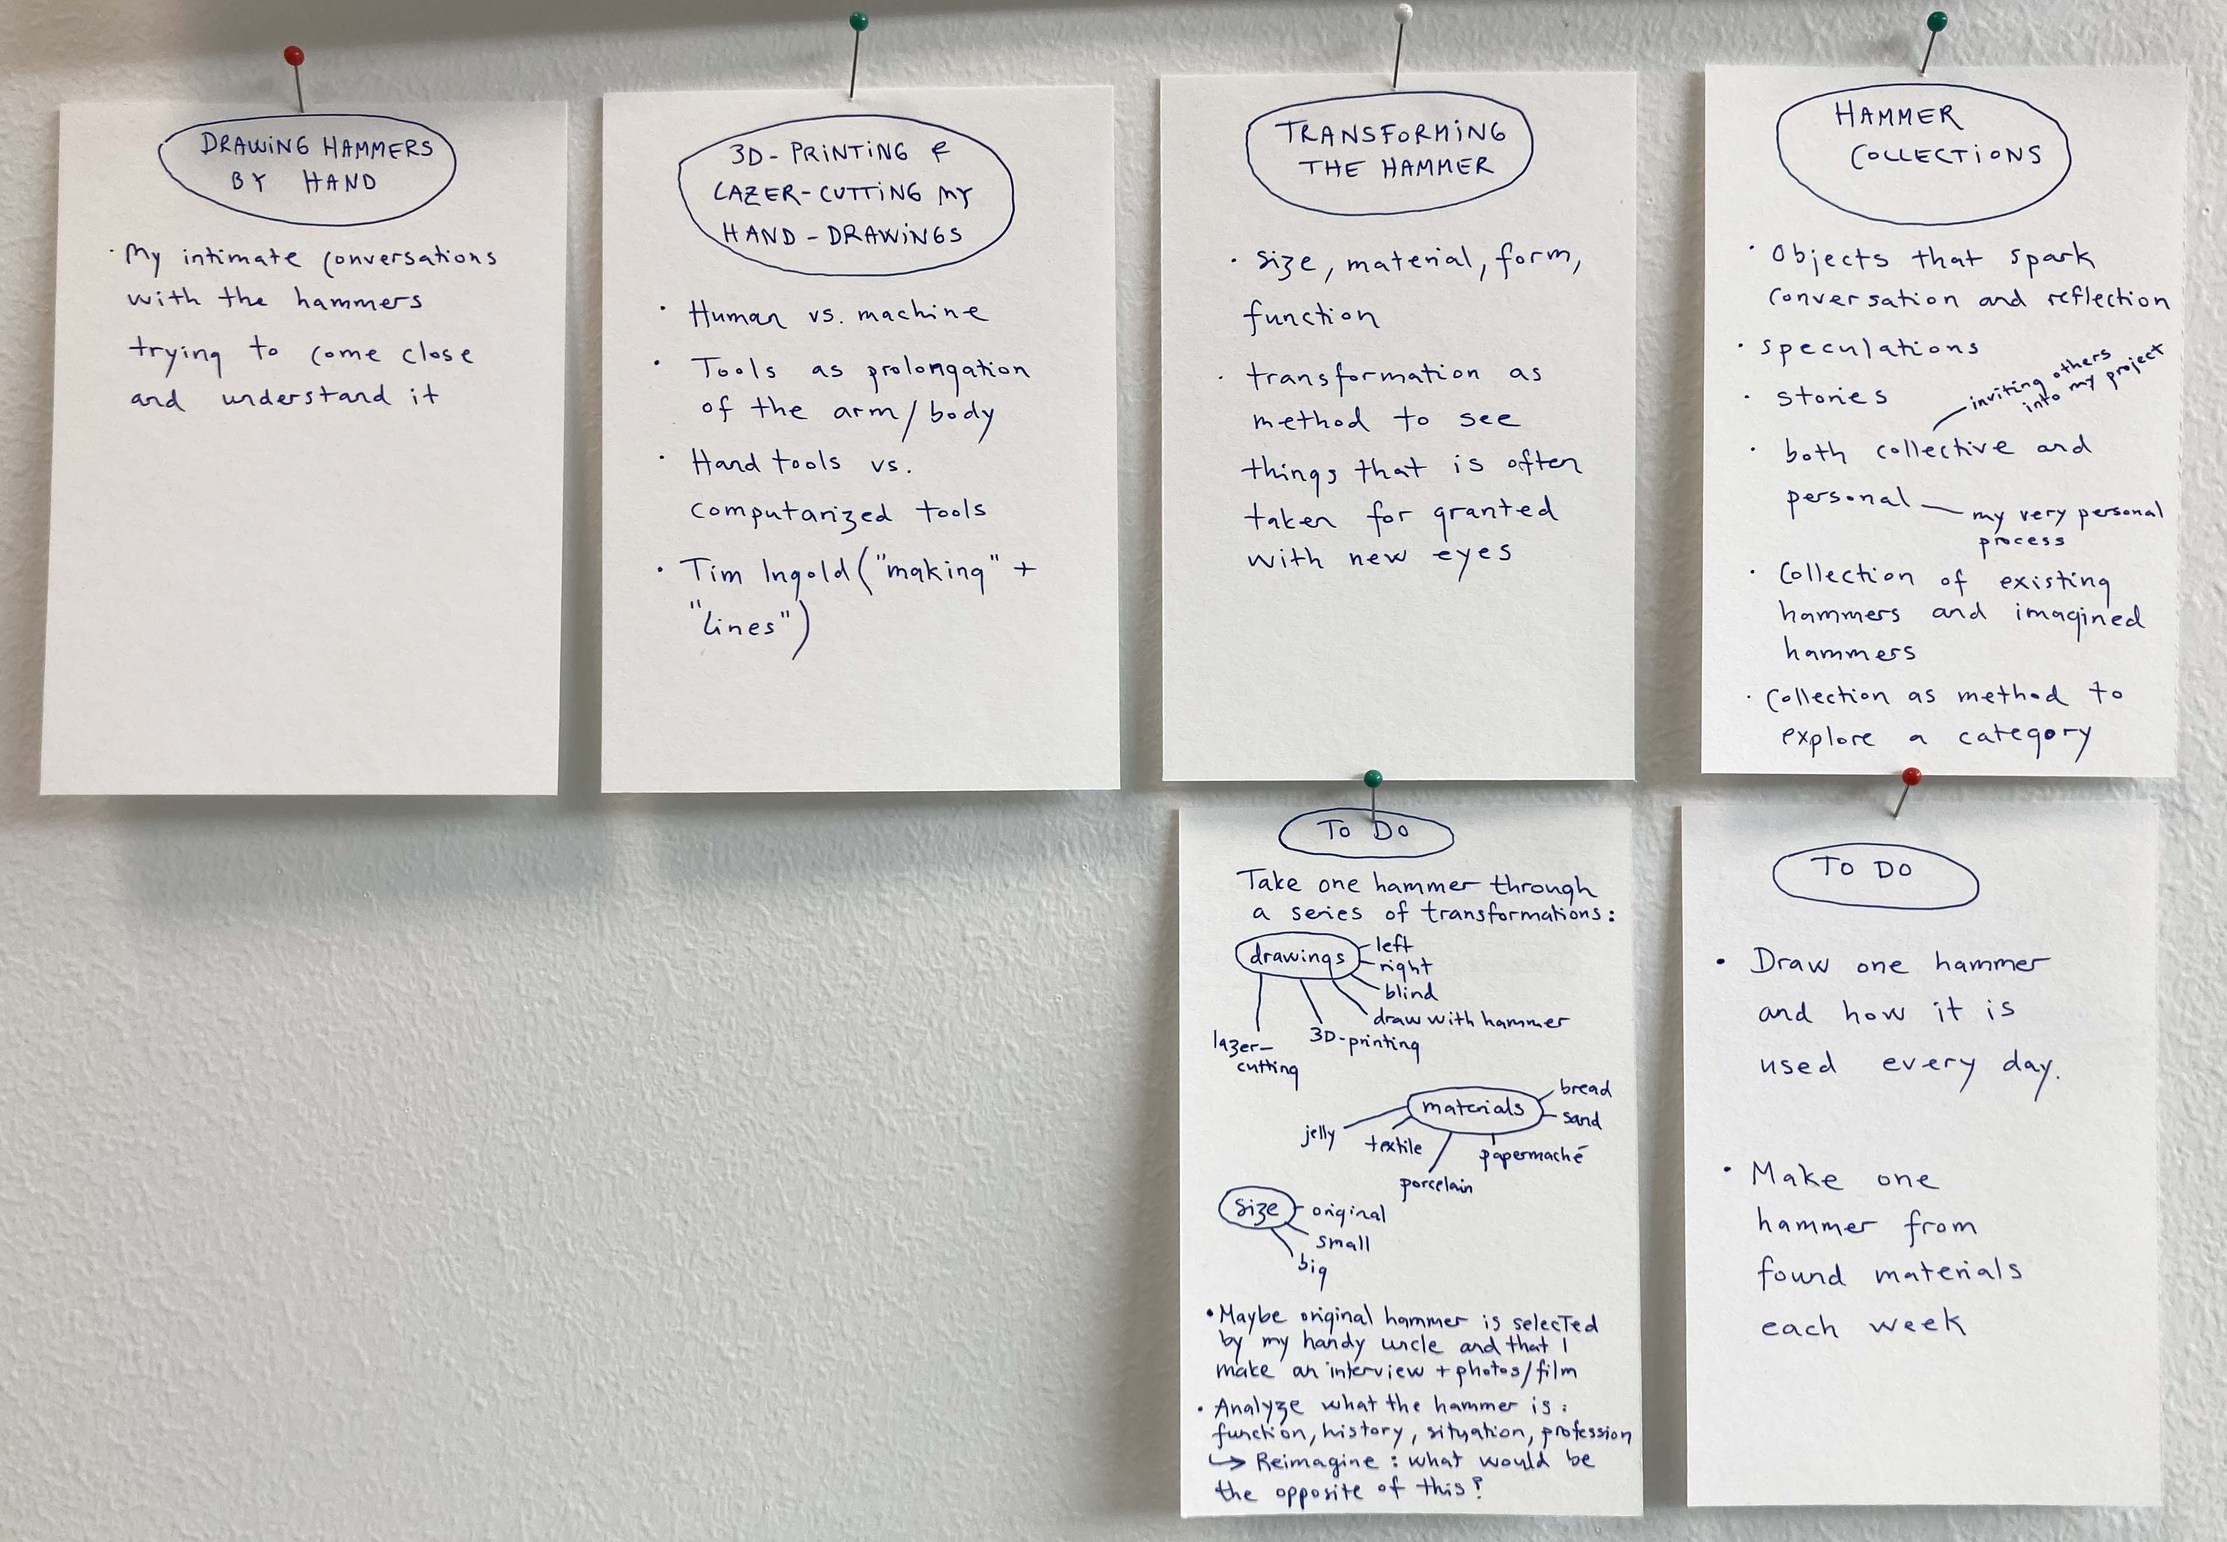 DRAWING HAMMERS
BY HAND
· My intimate conversations
with the hammers
trying to come close
and understand it
3D-PRINTING &
LAZER-CUTTING MY
HAND-DRAWINGS
· Human vs. machine
· Tools as prolongation
of the arm/body
· Hand tools vs.
computarized tools
· Tim Ingold ("making" +
"Lines")
TRANSFORMING
THE HAMMER
· size, material, form,
function
· transformation as
method to see
things that is often
taken for granted
with new eyes
HAMMER
COLLECTIONS
· Objects that spark
conversation and reflection
· speculations
· stories
inviting others
into my project
· both collective and
personal
my very personal
process
· Collection of existing
hammers and imagined
hammers
· Collection as method to
explore a category
TO DO
Take one hammer through
a series of transformations:
drawings
left
right
blind
draw with hammer
3D-printing
lazer-
cutting
materials
bread
sand
papermaché
porcelain
textile
jelly
size
original
small
big
• Maybe original hammer is selected
by my handy uncle and that I
make an interview + photos/film
• Analyze what the hammer is:
function, history, situation, profession
↳ Reimagine: what would be
the opposite of this?
TO DO
• Draw one hammer
and how it is
used every day.
• Make one
hammer from
found materials
each week